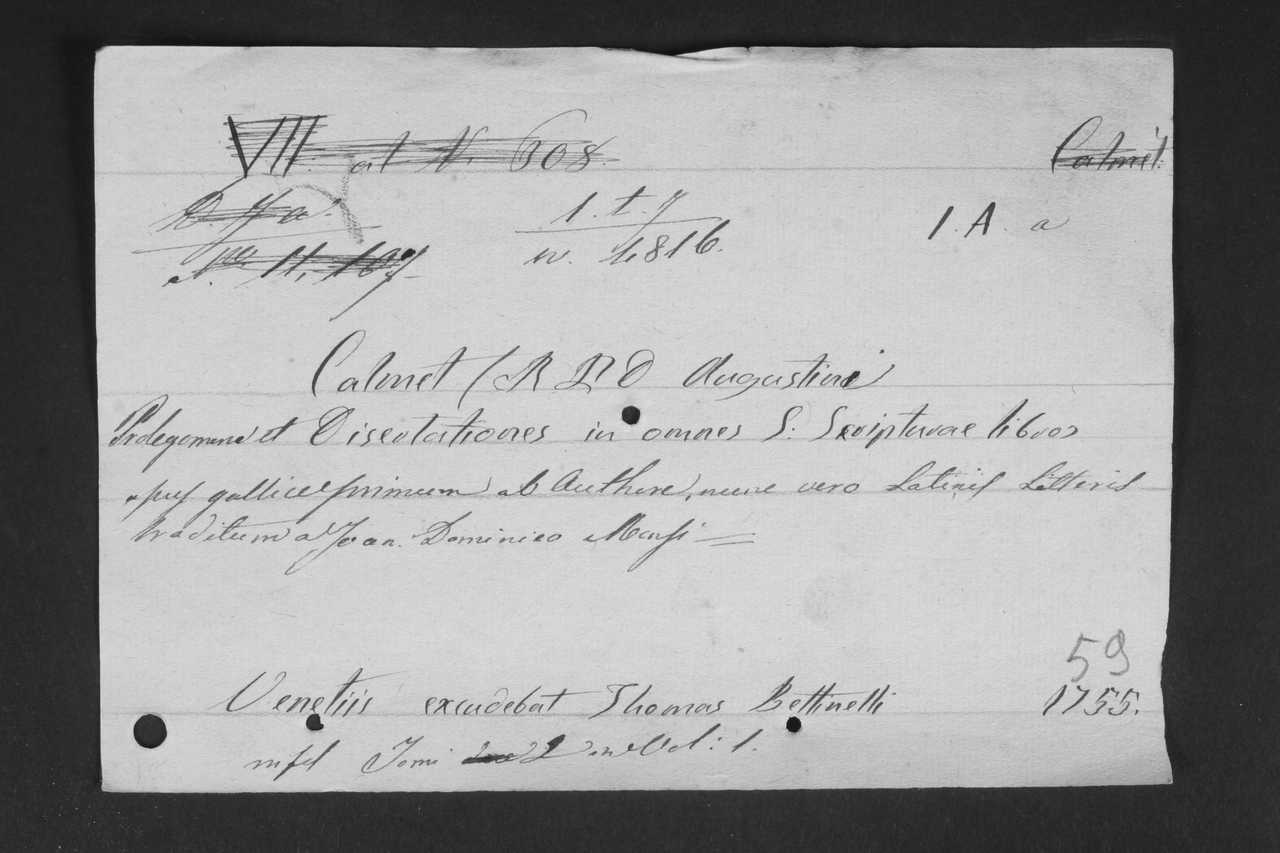 VII. at N. 608.
Calmet.
1. t. 7
1. A. a
w. 4816.
Calmet (R P D Augustini
Prolegomena et Disertationes in omnes S: Scripturae libros
opus gallice primum ab Authore, nunc vero Latinis Litteris
traditum a Joan. Dominico Mansi
59
Venetiis excudebat Thomas Bettinelli 1755.
Tomi 2 in Vol: 1.